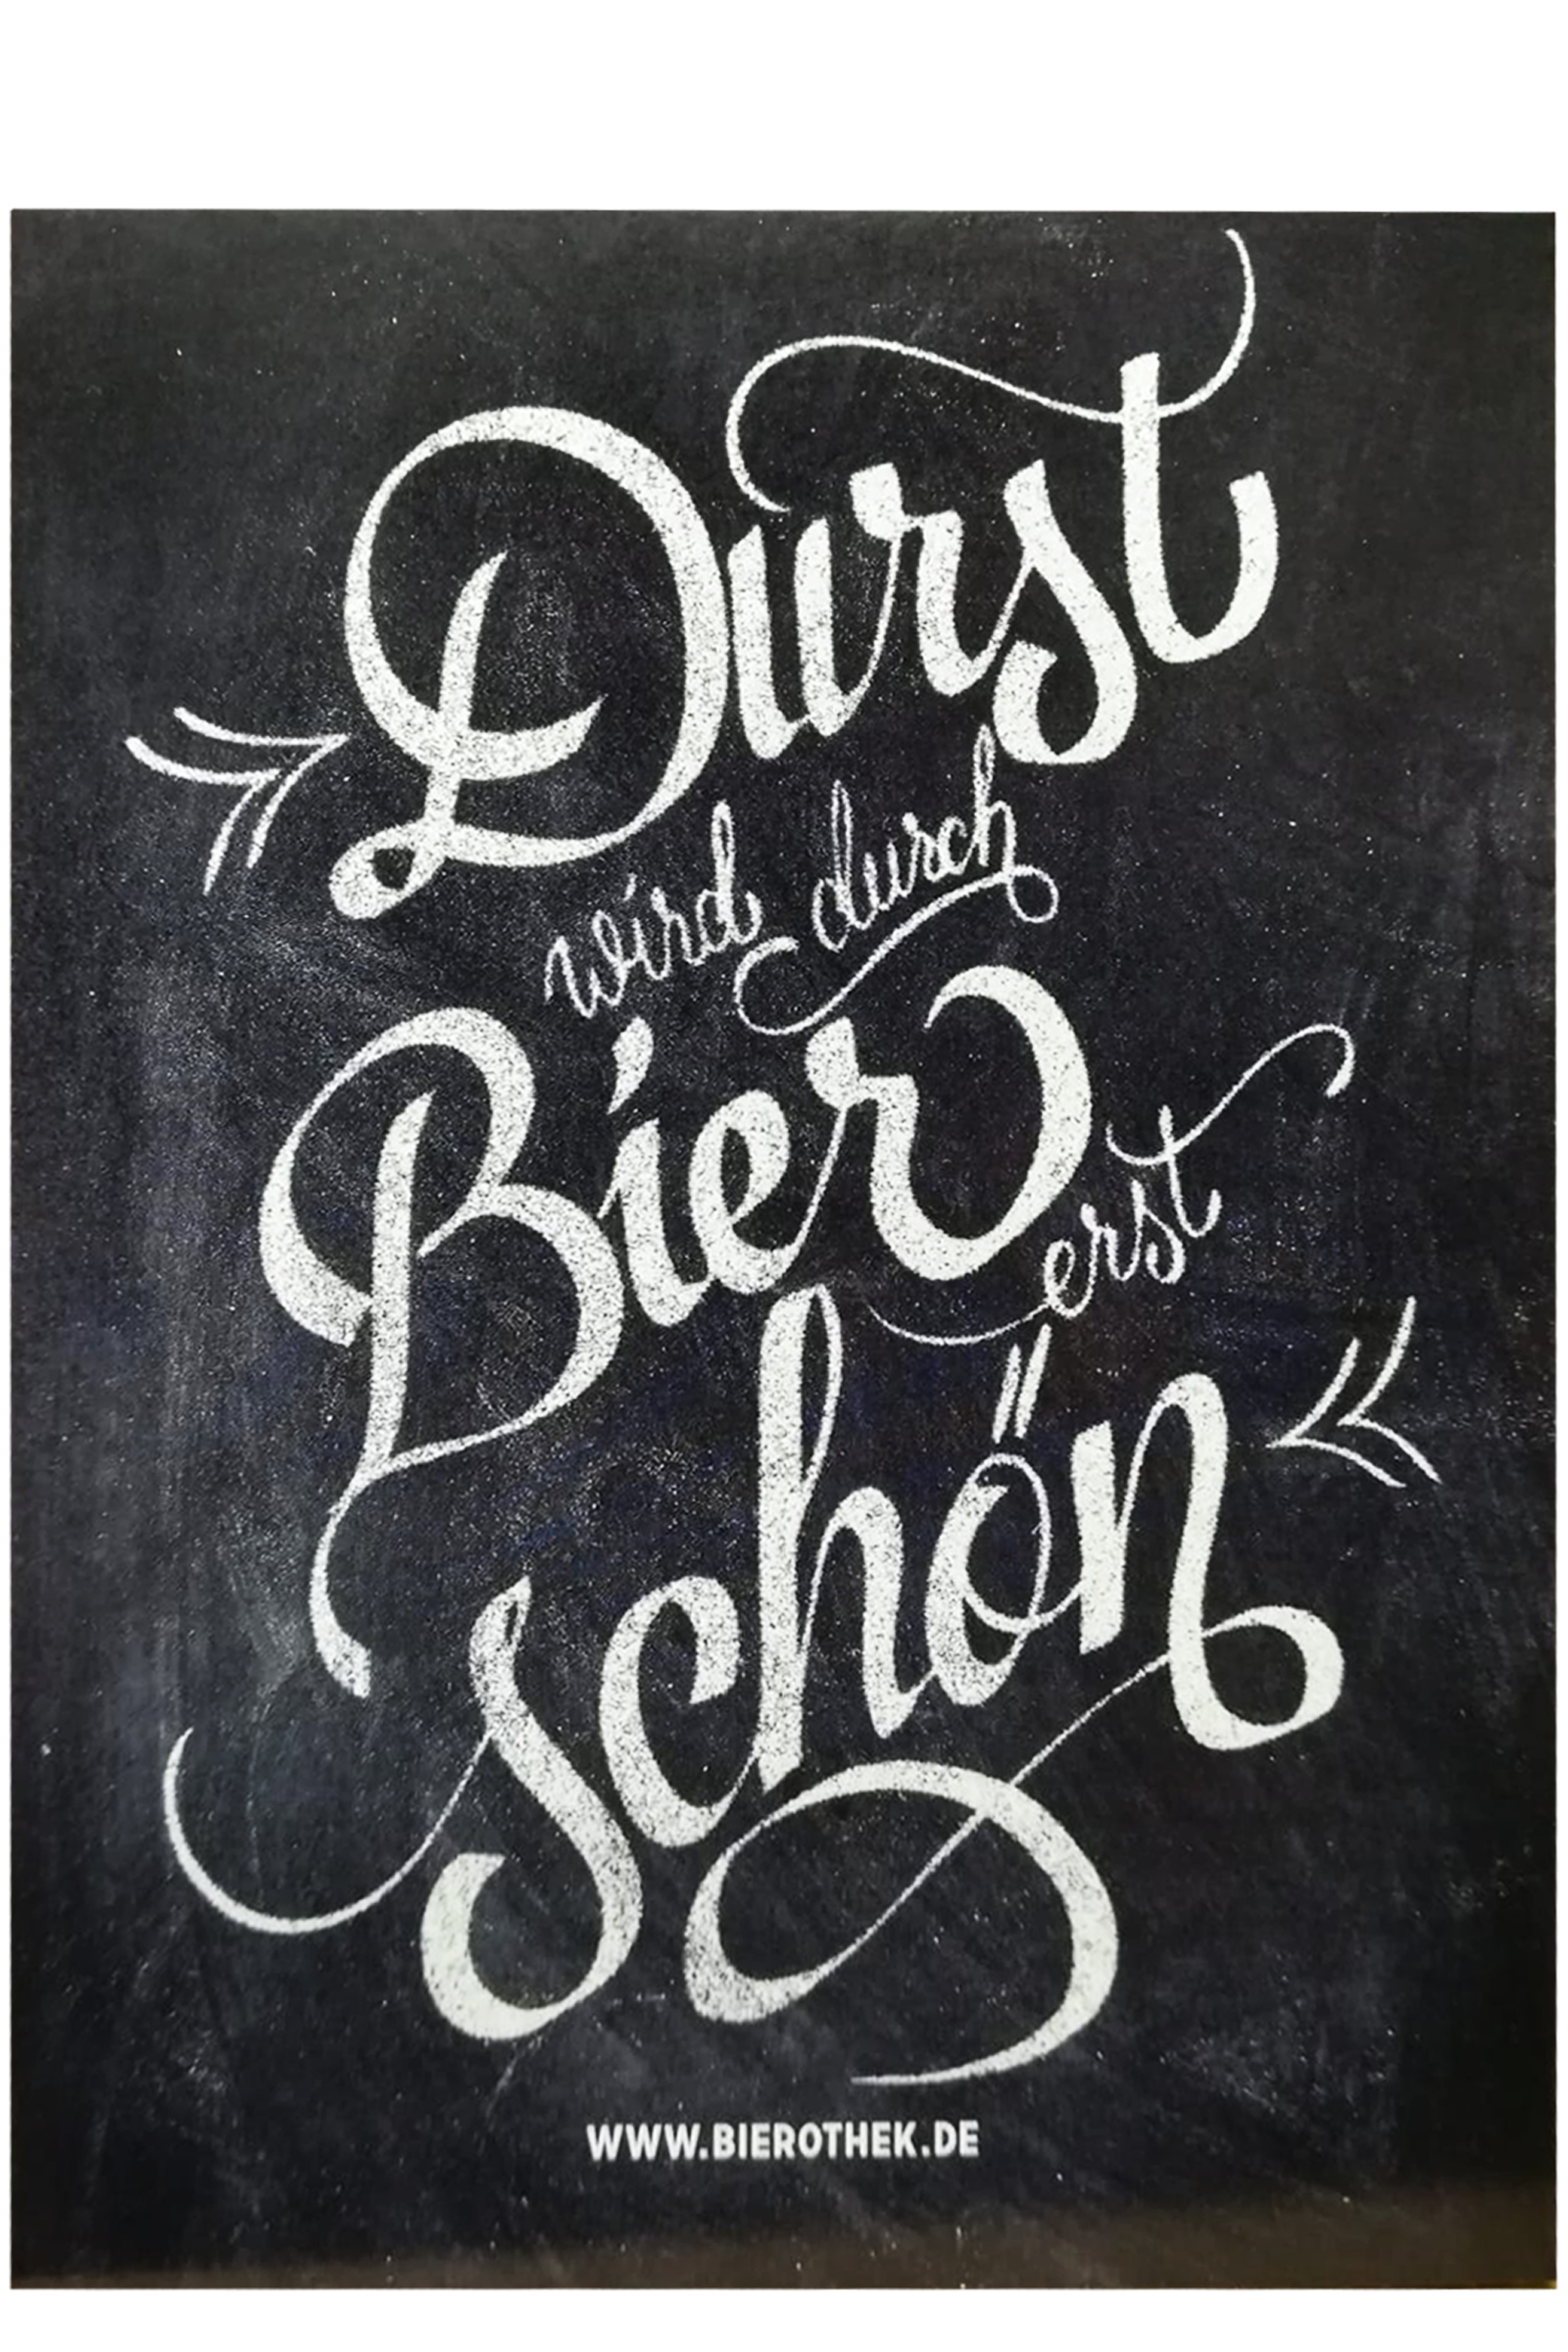 Durst
wird durch
Bier
erst
schön
WWW.BIEROTHEK.DE